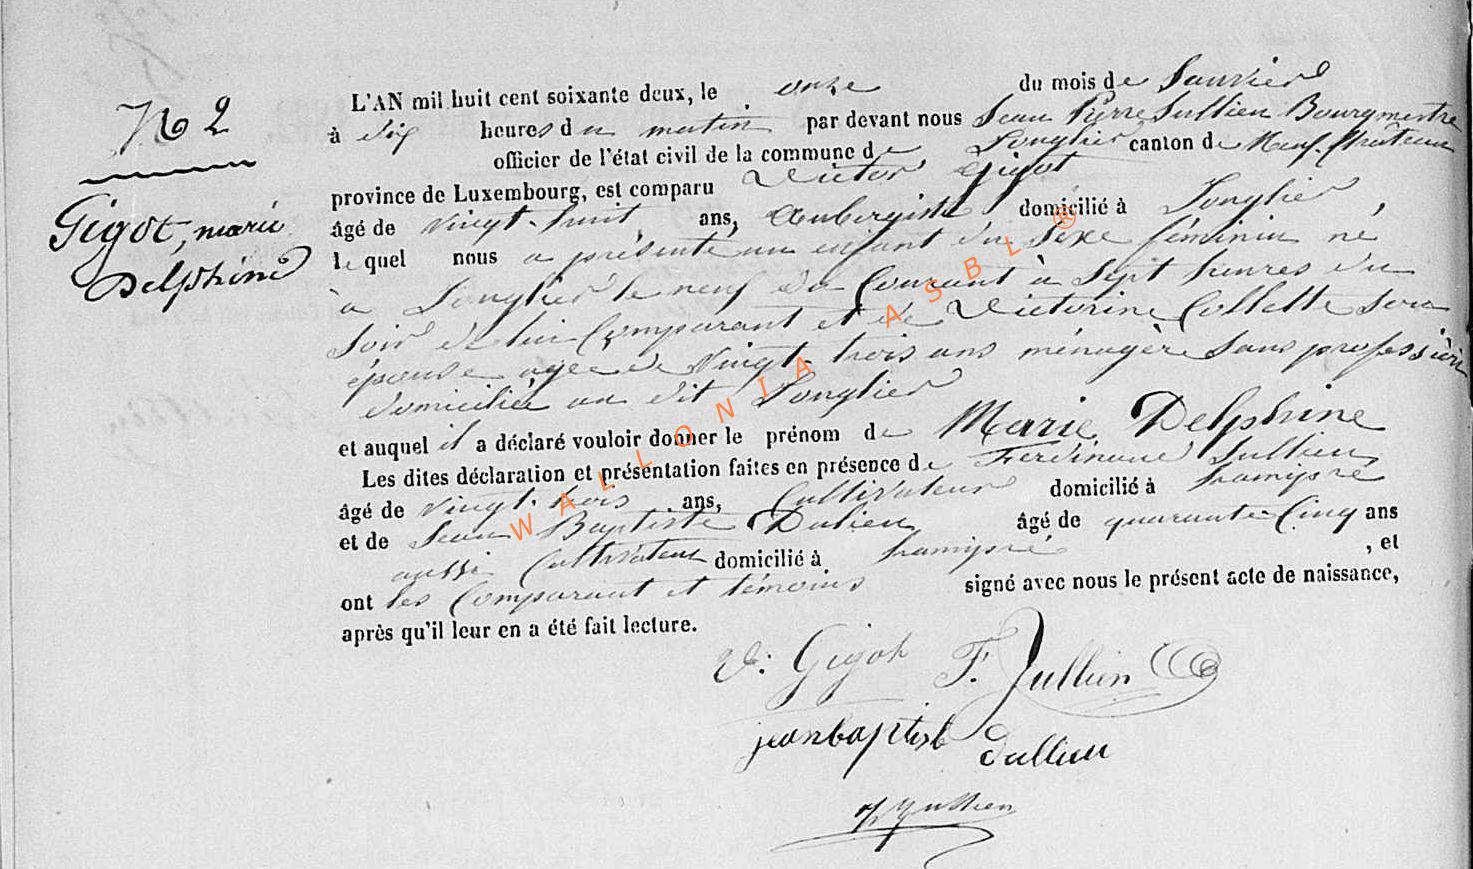 N° 2
Gigot, marie
Delphine
L'AN mil huit cent soixante deux, le onze du mois de Janvier
à dix heures du matin par devant nous Jean Pierre Jullien Bourgmestre
officier de l'état civil de la commune de Longlier canton de Neuf-château
province de Luxembourg, est comparu Victor Gigot
âgé de vingt-huit ans, Aubergiste domicilié à Longlier,
lequel nous a présenté un enfant du sexe féminin né
à Longlier le neuf du Courant à Sept heures du
soir de lui Comparant et de Victorine Collette son
épouse agée de Vingt-trois ans ménagère Sans profession
domiciliée au dit Longlier
et auquel il a déclaré vouloir donner le prénom de Marie Delphine
Les dites déclaration et présentation faites en présence de Ferdinand Jullien
âgé de vingt-trois ans, Cultivateur domicilié à hamipré
et de Jean Baptiste Dulieu âgé de quarante-Cinq ans
aussi Cultivateur domicilié à hamipré, et
ont les Comparant et témoins signé avec nous le présent acte de naissance,
après qu'il leur en a été fait lecture.
V. Gigot F. Jullien
jean baptist dullieu
Jullien
WALLONIA ASBL ®